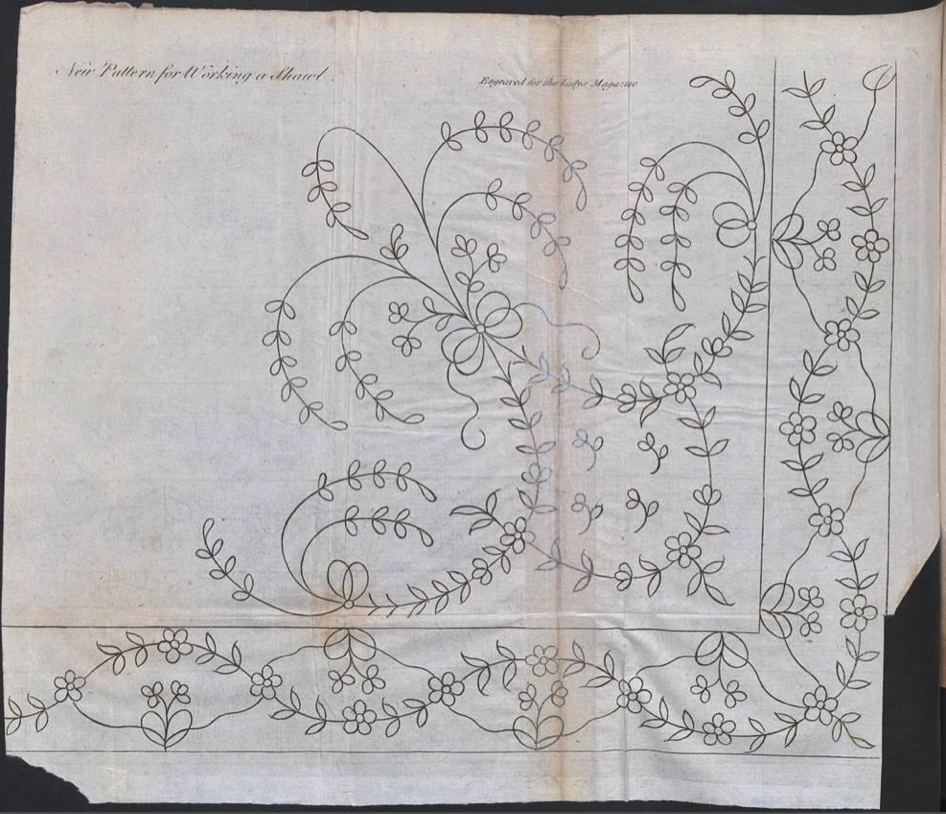 New Pattern for Working a Shawl.
Engraved for the Ladys Magazine